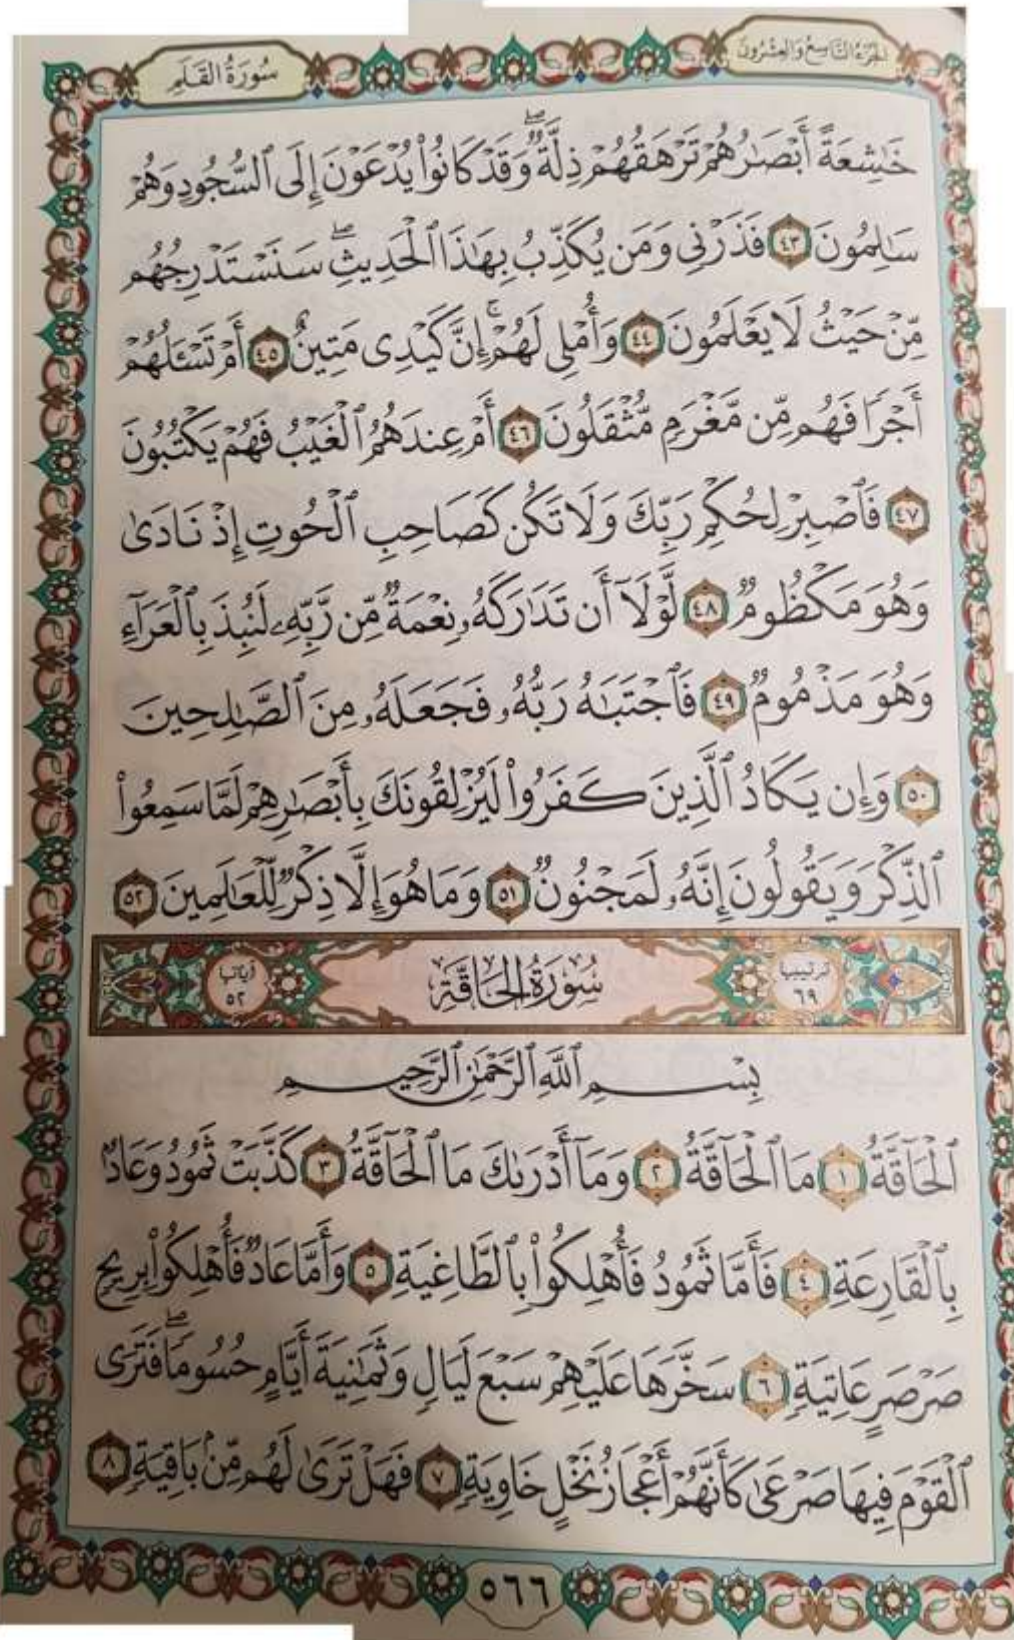 الجُزْءُ التَّاسِعُ وَالعِشْرُونَ
سُورَةُ القَلَمِ
خَٰشِعَةً أَبْصَٰرُهُمْ تَرْهَقُهُمْ ذِلَّةٌۖ وَقَدْ كَانُوا۟ يُدْعَوْنَ إِلَى ٱلسُّجُودِ وَهُمْ
سَٰلِمُونَ ٤٣ فَذَرْنِى وَمَن يُكَذِّبُ بِهَٰذَا ٱلْحَدِيثِۖ سَنَسْتَدْرِجُهُم
مِّنْ حَيْثُ لَا يَعْلَمُونَ ٤٤ وَأُمْلِى لَهُمْۚ إِنَّ كَيْدِى مَتِينٌ ٤٥ أَمْ تَسْـَٔلُهُمْ
أَجْرًا فَهُم مِّن مَّغْرَمٍ مُّثْقَلُونَ ٤٦ أَمْ عِندَهُمُ ٱلْغَيْبُ فَهُمْ يَكْتُبُونَ
٤٧ فَٱصْبِرْ لِحُكْمِ رَبِّكَ وَلَا تَكُن كَصَاحِبِ ٱلْحُوتِ إِذْ نَادَىٰ
وَهُوَ مَكْظُومٌ ٤٨ لَّوْلَآ أَن تَدَٰرَكَهُۥ نِعْمَةٌ مِّن رَّبِّهِۦ لَنُبِذَ بِٱلْعَرَآءِ
وَهُوَ مَذْمُومٌ ٤٩ فَٱجْتَبَٰهُ رَبُّهُۥ فَجَعَلَهُۥ مِنَ ٱلصَّٰلِحِينَ
٥٠ وَإِن يَكَادُ ٱلَّذِينَ كَفَرُوا۟ لَيُزْلِقُونَكَ بِأَبْصَٰرِهِمْ لَمَّا سَمِعُوا۟
ٱلذِّكْرَ وَيَقُولُونَ إِنَّهُۥ لَمَجْنُونٌ ٥١ وَمَا هُوَ إِلَّا ذِكْرٌ لِّلْعَٰلَمِينَ ٥٢
ترتيبها ٦٩ سُورَةُ الحَاقَّةِ آياتها ٥٢
بِسْمِ ٱللَّهِ ٱلرَّحْمَٰنِ ٱلرَّحِيمِ
ٱلْحَآقَّةُ ١ مَا ٱلْحَآقَّةُ ٢ وَمَآ أَدْرَىٰكَ مَا ٱلْحَآقَّةُ ٣ كَذَّبَتْ ثَمُودُ وَعَادٌۢ
بِٱلْقَارِعَةِ ٤ فَأَمَّا ثَمُودُ فَأُهْلِكُوا۟ بِٱلطَّاغِيَةِ ٥ وَأَمَّا عَادٌ فَأُهْلِكُوا۟ بِرِيحٍ
صَرْصَرٍ عَاتِيَةٍ ٦ سَخَّرَهَا عَلَيْهِمْ سَبْعَ لَيَالٍ وَثَمَٰنِيَةَ أَيَّامٍ حُسُومًا فَتَرَى
ٱلْقَوْمَ فِيهَا صَرْعَىٰ كَأَنَّهُمْ أَعْجَازُ نَخْلٍ خَاوِيَةٍ ٧ فَهَلْ تَرَىٰ لَهُم مِّنۢ بَاقِيَةٍ ٨
٥٦٦